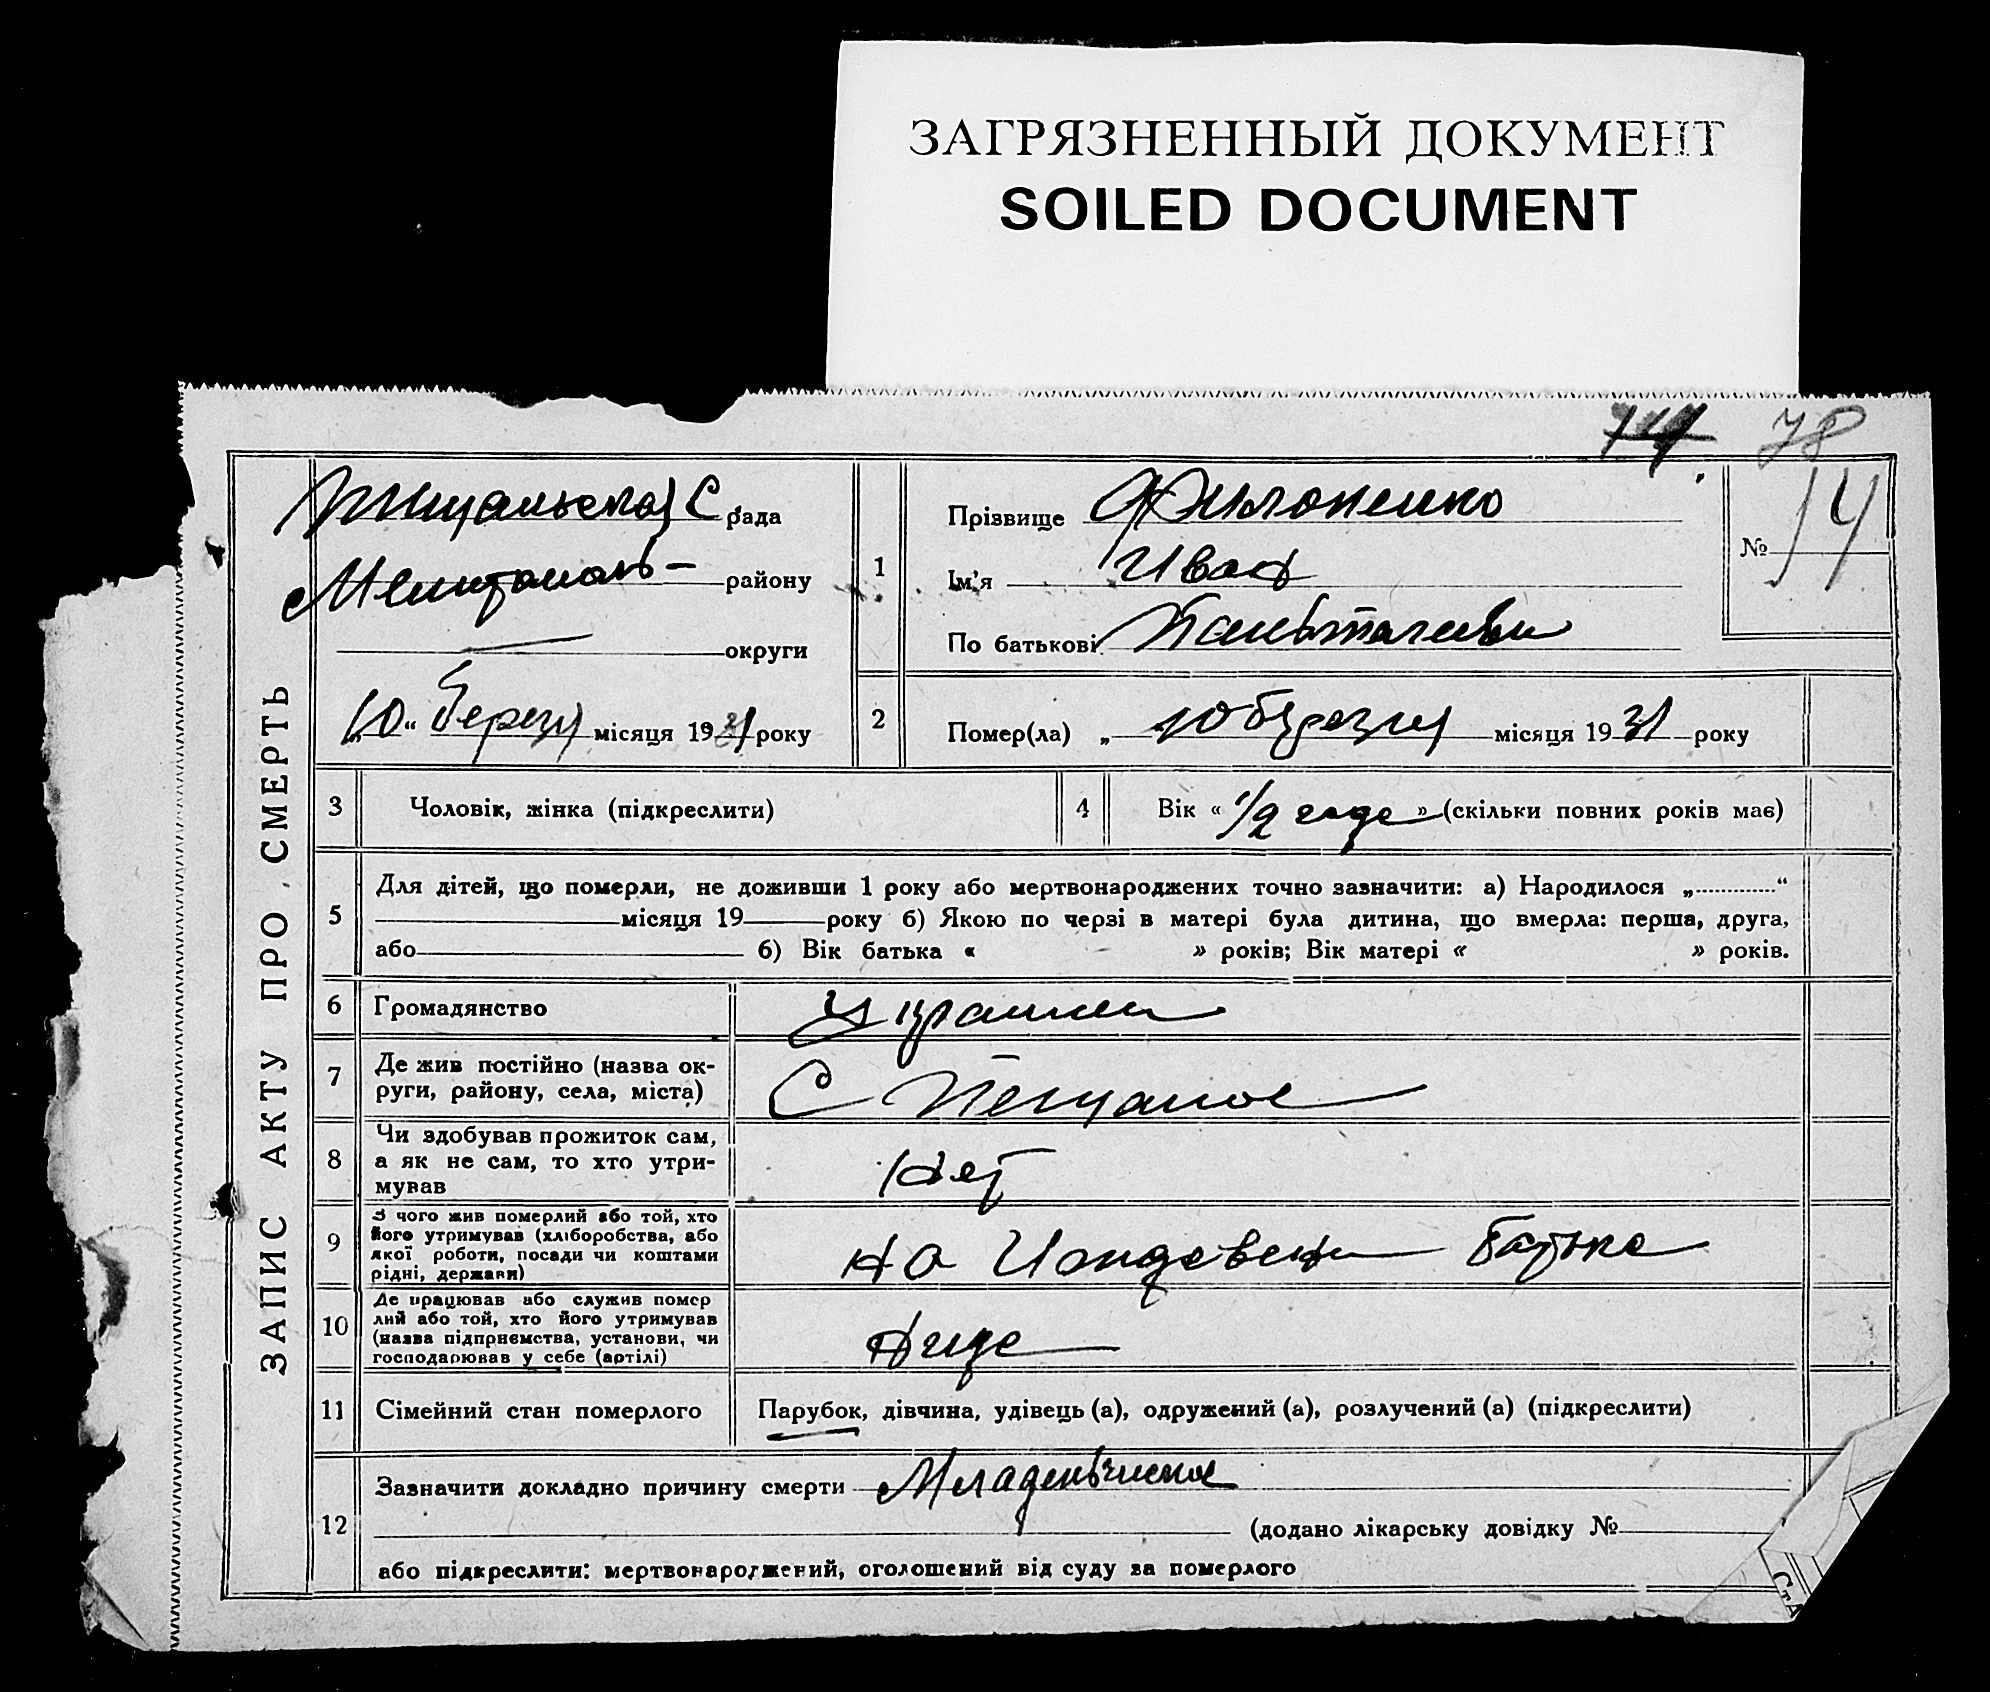 ЗАГРЯЗНЕННЫЙ ДОКУМЕНТ
SOILED DOCUMENT
78
ЗАПИС АКТУ ПРО СМЕРТЬ
С рада
району
округи
„10“ березня місяця 1931 року
1
Прізвище Филоненко
Ім’я Иван
По батькові
№ 14
2
Помер(ла) „ 10 березня місяця 1931 року
3
Чоловік, жінка (підкреслити)
4
Вік « 1/2 года » (скільки повних років має)
5
Для дітей, що померли, не доживши 1 року або мертвонароджених точно зазначити: а) Народилося „............“
місяця 19 року б) Якою по черзі в матері була дитина, що вмерла: перша, друга,
або б) Вік батька « » років; Вік матері « » років.
6
Громадянство
7
Де жив постійно (назва ок-
руги, району, села, міста)
С Песчаное
8
Чи здобував прожиток сам,
а як не сам, то хто утри-
мував
Нет
9
З чого жив померлий або той, хто
його утримував (хліборобства, або
якої роботи, посади чи коштами
рідні, держави)
на Иждевени Батька
10
Де працював або служив помер
лий або той, хто його утримував
(назва підприємства, установи, чи
господарював у себе (артілі)
Нигде
11
Сімейний стан померлого
Парубок, дівчина, удівець (а), одружений (а), розлучений (а) (підкреслити)
12
Зазначити докладно причину смерти Младенческое
(додано лікарську довідку №
або підкреслити: мертвонароджений, оголошений від суду за померлого